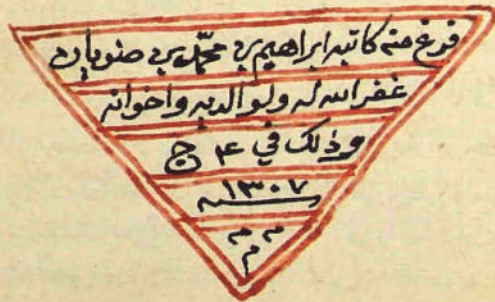 فرغ منه كاتبه ابراهيم بن محمد بن ضنويان
غفر الله له ولوالديه واخوانه
وذلك في ٤ ج
١٣٠٧
م م م